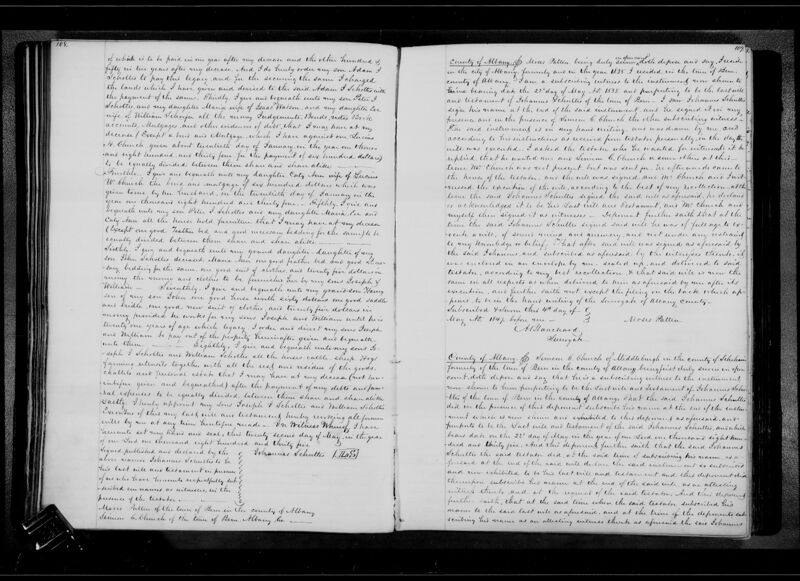 108.
of which is to be paid in one year after my decease and the other hundred &
fifty in two years after my decease. And I do hereby order my son Adam I
Schultes to pay this legacy and for the securing the same I charged
the lands which I have given and devised to the said Adam I Schultes with
the payment of the same. Thirdly, I give and bequeath unto my son Peter I
Schultes, and my daughter Maria wife of Isaac Watson, and my daughter
wife of William all the money Judgements Bonds, notes Book
accounts, Mortgages and other evidence of debt, that I may have at my
decease (Except a bond and mortgage which I have against one Lucius
W. Church given about twentieth day of January in the year one thous
and eight hundred and thirty four for the payment of six hundred dollars)
to be equally divided between them share and share alike
Fourthly. I give and bequeath unto my daughter Caty Ann wife of Lucius
W Church the bond and mortgage of six hundred dollars which was
given to me by her husband, on the twentieth day of January in the
year one thousand eight hundred and thirty four. Fifthly, I give and
bequeath unto my son Peter I Schultes and my daughter Maria and
Caty Ann all the house hold furniture that I may have at my decease
(Except one good Feather bed and good necessary bedding for the same) to be
equally divided between them share and share alike
Sixthly, I give and bequeath unto my grand daughter, daughter of my
son John Schultes deceased, Maria Ann one good feather bed and good
bedding for the same, one good suit of clothes, and twenty five dollars in
money the money and clothes to be furnished her by my sons Joseph &
William Seventhly. I give and bequeath unto my grandson Henry
son of my son John one good horse worth sixty dollars one good saddle
and bridle, one good new suit of clothes, and twenty five dollars in
money provided he works for my sons Joseph and William until he is
twenty one years of age which legacy I order and direct my sons Joseph
and William to pay out of the property hereinafter given and bequeath
unto them Eighthly, I give and bequeath unto my sons Jo-
seph I Schultes and William Schultes all the horses cattle, sheep Hogs
farming utensils together with all the rest and residue of the goods,
chattels and personal estate that I may have at my decease (not
given and bequeathed) after the payment of my debts and fune
ral expenses to be equally divided between them share and share alike
Lastly I hereby appoint my sons Joseph I Schultes and William Schultes
Executors of this my last will and testament hereby revoking all former
wills by me at any time heretofore made In Witness Whereof, I have
hereunto set my hand and seal, this twenty second day of May, in the year
of our Lord one thousand eight hundred and thirty five
Signed published and declared by the Johannes Schultes [L.S.]
above named Johannes Schultes to be
his last will and testament in presence
of us who have hereunto respectfully sub
scribed our names as witnesses in the
presence of the testator
Moses Patten of the town of Bern in the county of Albany
Simeon C. Church of the town of Bern Albany Co
109
County of Albany SS Moses Patten being duly sworn doth depose and say, I reside
in the city of Albany formerly and in the year 1835 I resided in the town of Bern
county of Albany. I am a subscribing witness to the instrument now shown to
me bearing date the 22nd day of May AD. 1835 and purporting to be the last will
and testament of Johannes Schultes of the town of Bern. I saw Johannes Schultes
sign his name at the end of the said instrument and he signed it in my
presence and in the presence of Simeon C Church the other subscribing witness
The said instrument is in my hand writing, and was drawn by me, and
according to his instructions as received from testator personally, on the day the
will was executed. I asked the testator who he wanted for witnesses, &c he
replied that he wanted me and Simeon C. Church or some other at this
time Mr Church was not present but was sent for. He afterwards came to
the house of the testator, and the will was signed, and Mr Church and I wit
nessed the execution of the will, according to the best of my recollection, at the
time the said Johannes Schultes signed the said will as aforesaid, he declared
or acknowledged it to be his last will and testament, and Mr Church and
myself then signed it as witnesses Deponent further saith that at the
time the said Johannes Schultes signed said will he was of full age to ex-
ecute a will, of sound mind and memory, and not under any restraint
to my knowledge or belief. That after said will was signed as aforesaid by
the said Johannes and subscribed as aforesaid by the witnesses thereto, it
was enclosed in an envelope by me, sealed up, and delivered to said
testator, according to my best recollection, & that said will is now the
same in all respects as when delivered to him as aforesaid by me after its
execution, and further saith not except the filing on the back which ap-
pears to be in the hand writing of the Surrogate of Albany county.
Subscribed & Sworn this 4th day of
May AD. 1847. before me Moses Patten
A Blanchard
Surrogate
County of Albany SS Simeon C Church of Middleburgh in the county of Schoharie
formerly of the town of Bern in the county of Albany being first duly sworn on
oath depose and say, that he is a subscribing witness to the instrument
now shown to him purporting to be the Last will and Testament of Johannes Schul-
tes of the town of Bern in the county of Albany that the said Johannes Schultes
did in the presence of this deponent subscribe his name at the end of the instru
ment which is now shown and exhibited to this deponent as aforesaid, and
purports to be the Last will and testament of the said Johannes Schultes, and which
bears date on the 22nd day of May in the year of our Lord one thousand eight hun-
dred and thirty five. And this deponent further saith that the said Johannes
Schultes the said testator did, at the said time of subscribing his name as a-
foresaid at the end of the said will declare the said instrument so subscribed
and now exhibited to be his last will and testament and this deponent did
thereupon subscribe his name at the end of the said will as an attesting
witness thereto and at the request of the said testator. And this deponent
further saith, that at the said time when the said testator subscribed his
name to the said last will as aforesaid, and at the time of the deponents sub
scribing his name as an attesting witness thereto as aforesaid the said Johannes